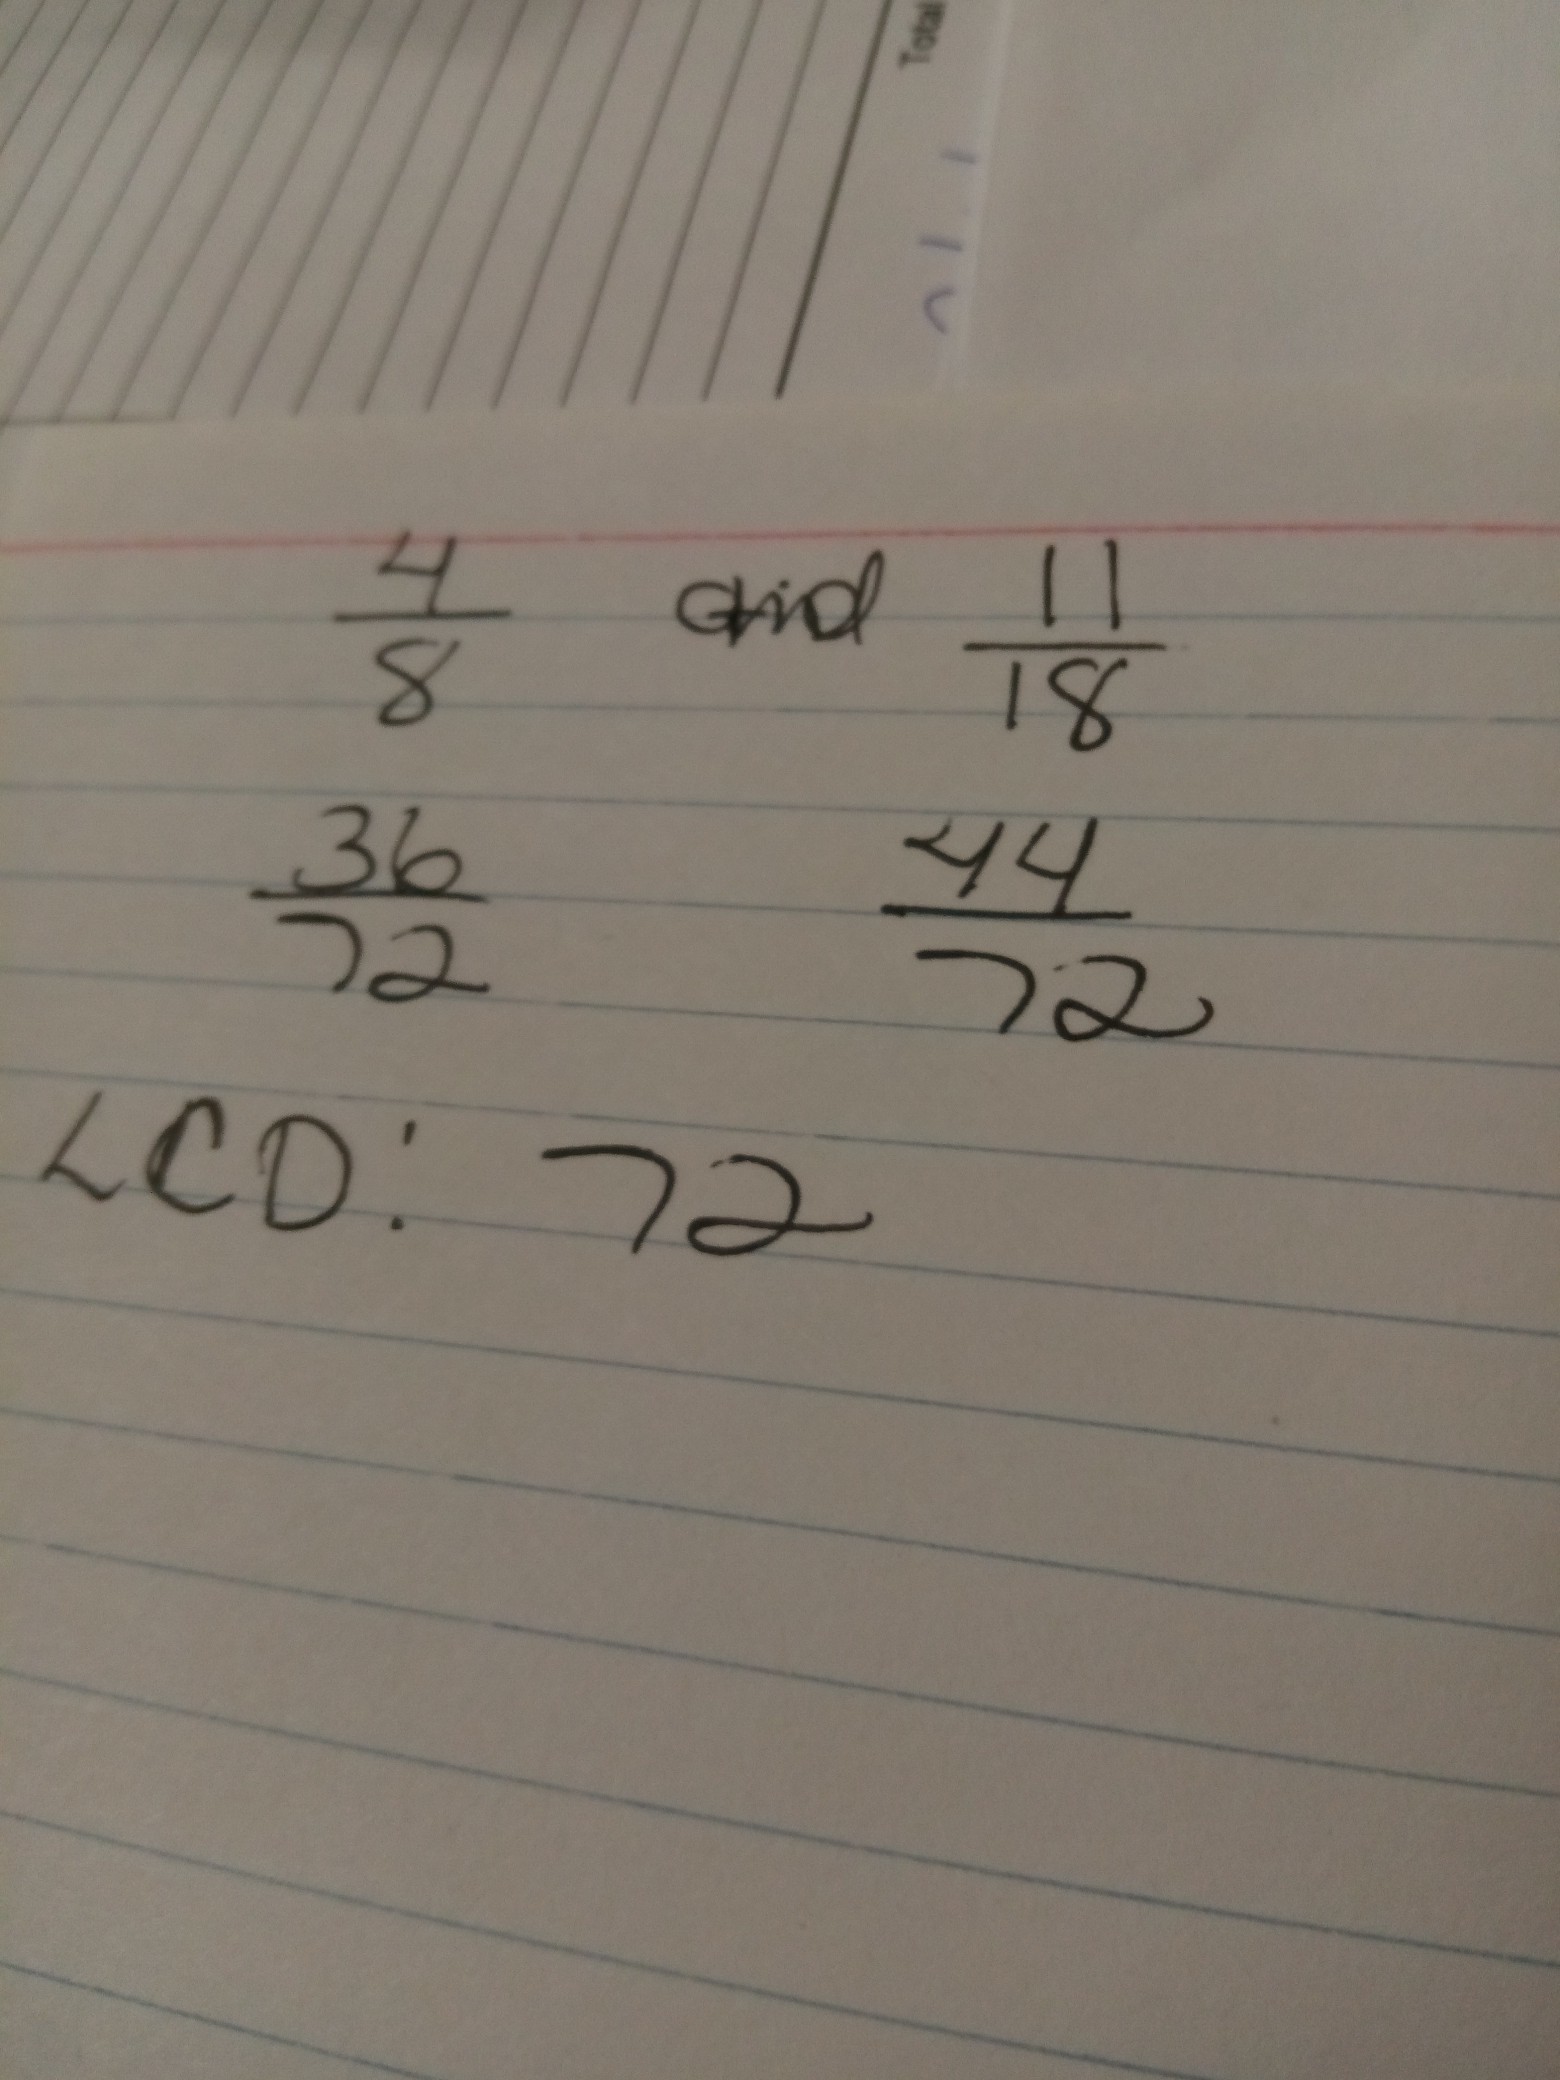 Total
4/8 and 11/18
36/72 44/72
LCD: 72